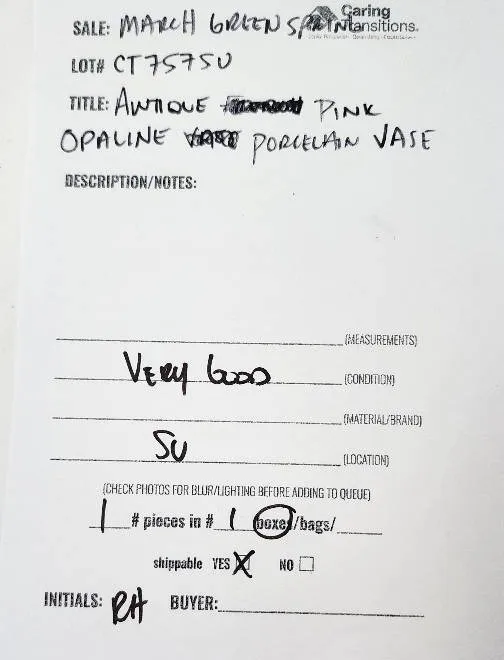 SALE: MARCH GREENSPRING
Caring Transitions.
LOT# CT7575U
TITLE: ANTIQUE PINK
OPALINE PORCELAIN VASE
DESCRIPTION/NOTES:
(MEASUREMENTS)
VERY GOOD (CONDITION)
(MATERIAL/BRAND)
SU (LOCATION)
(CHECK PHOTOS FOR BLUR/LIGHTING BEFORE ADDING TO QUEUE)
1 # pieces in # 1 boxes/bags/
shippable YES X NO
INITIALS: RH BUYER: